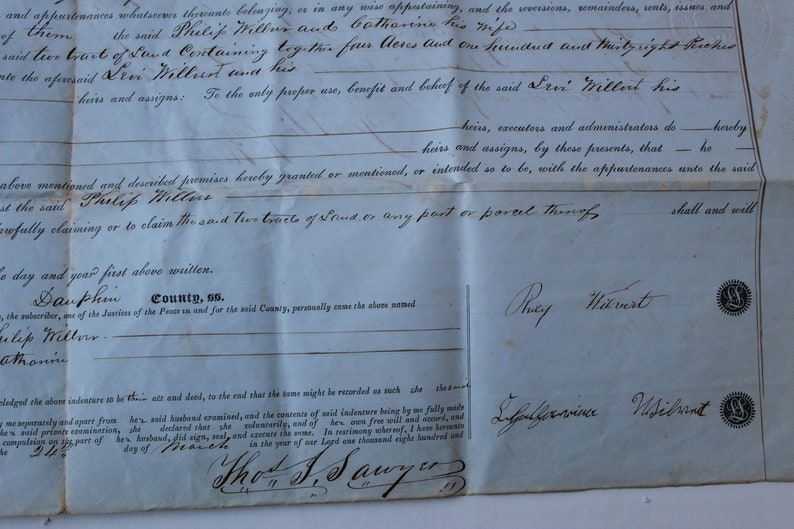 and appurtenances whatsoever thereunto belonging, or in any wise appertaining, and the reversions, remainders, rents, issues and
of them the said Philip Wilver and Catharine his Wife
said two tract of Land Containing together four Acres and one hundred and thirtyeight Perches
nto the aforesaid Levi Wilvert and his
heirs and assigns: To the only proper use, benefit and behoof of the said Levi Wilvert his
heirs, executors and administrators do hereby
heirs and assigns, by these presents, that he
above mentioned and described premises hereby granted or mentioned, or intended so to be, with the appurtenances unto the said
st the said Philip Wilver
awfully claiming or to claim the said two tracts of Land or any part or parcel thereof shall and will
he day and year first above written.
Dauphin County, ss.
, the subscriber, one of the Justices of the Peace in and for the said County, personally came the above named
hilip Wilver
atharine
Wilvert
LS
wledged the above indenture to be their act and deed, to the end that the same might be recorded as such she the said
y me separately and apart from her said husband examined, and the contents of said indenture being by me fully made
he said private examination, she declared that she voluntarily, and of her own free will and accord, and
compulsion on the part of her husband, did sign, seal, and execute the same. In testimony whereof, I have hereunto
he 24th day of March in the year of our Lord one thousand eight hundred and
Thos. S. Sawyer
LS